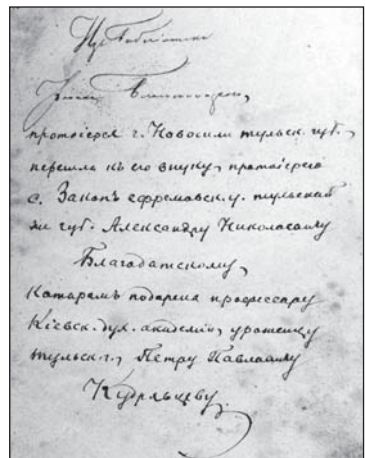 Изъ библіотеки
протоіерея г. Новосили тульск. губ.,
перешла къ его внуку, протоіерею
с. Закопъ ефремовск. у. тульской
же губ. Александру Николаевичу
Благодатскому,
которымъ подарена профессору
Кіевск. дух. академіи, уроженцу
тульск. г., Петру Павловичу
Кудрявцеву.